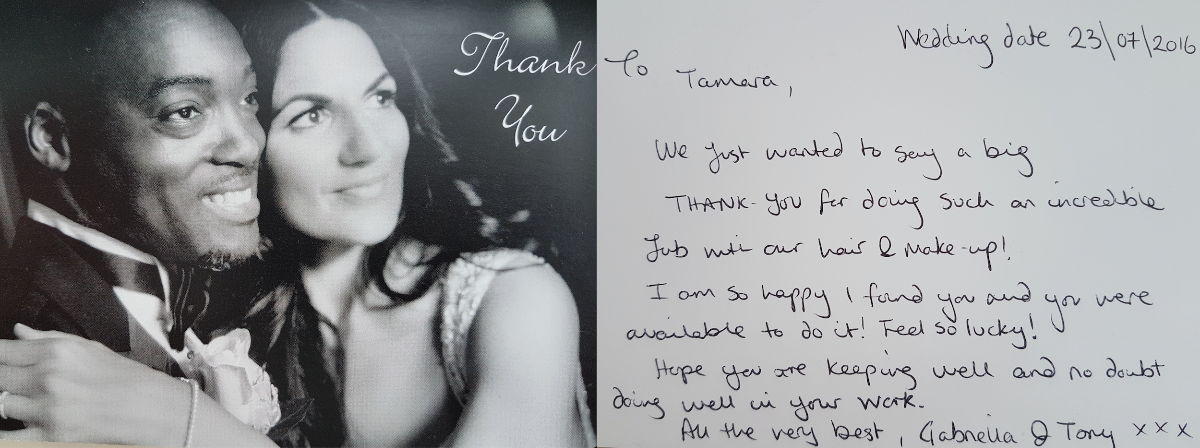 Thank
You
Wedding date 23/07/2016
To Tamara,
We just wanted to say a big
THANK-YOU for doing such an incredible
Job with our hair & make-up!
I am so happy I found you and you were
available to do it! Feel so lucky!
Hope you are keeping well and no doubt
doing well in your work.
All the very best, Gabriella & Tony xxx